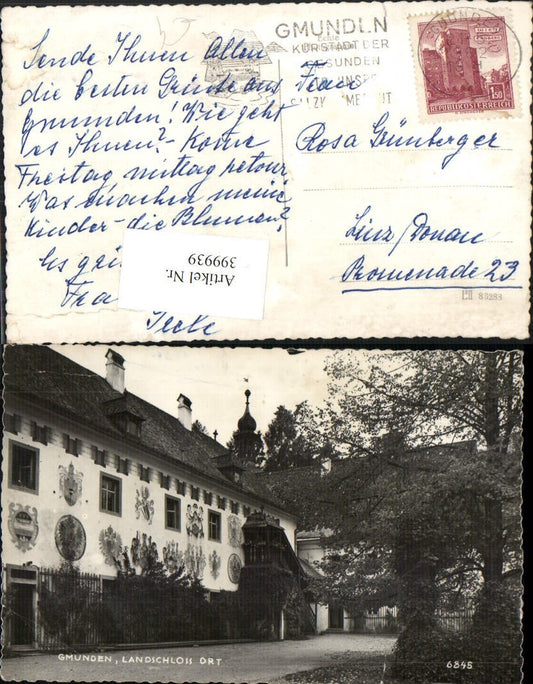 Sende Ihnen Allen
die besten Grüße aus
Gmunden! Wie geht
es Ihnen? - Komme
Freitag mittag retour
Was machen meine
Kinder - die Blumen?
Es grü
Artikel Nr.
399939
GMUNDEN
KURSTADT DER
GESUNDEN
1.50
REPUBLIK ÖSTERREICH
Frau
Rosa Grünberger
Linz/Donau
Promenade 23
83283
GMUNDEN, LANDSCHLOSS ORT
6845